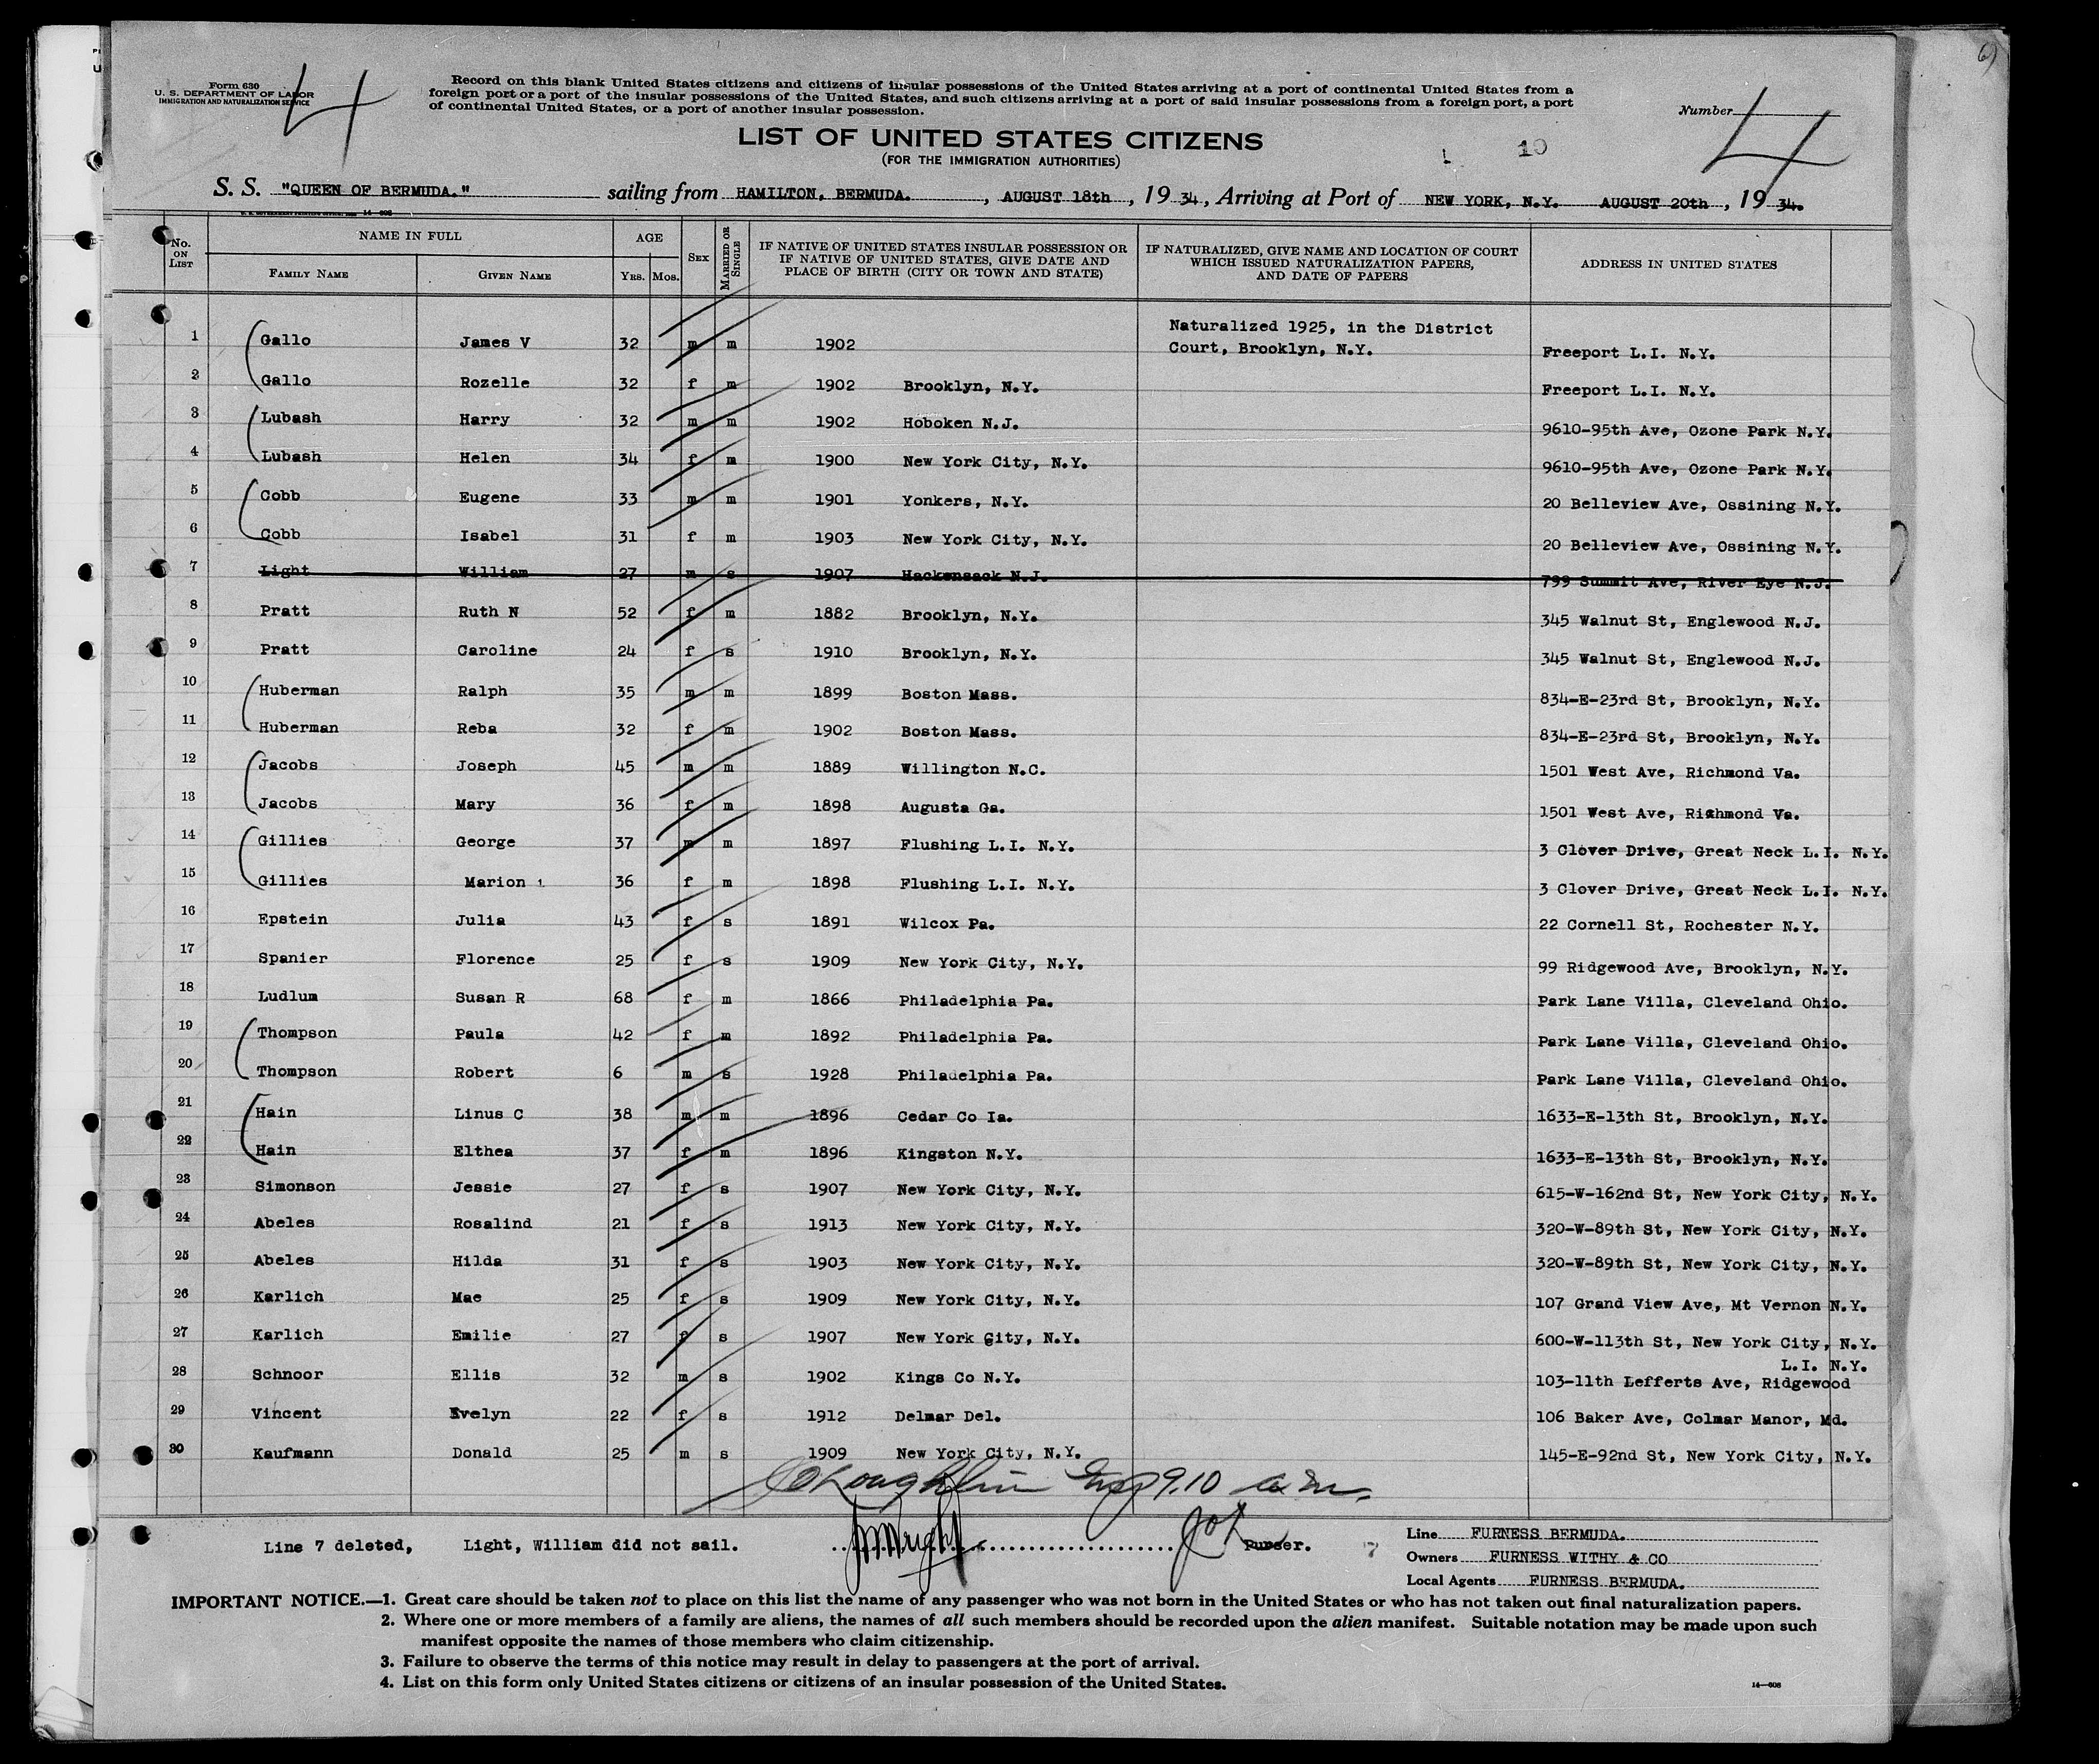 Form 630
U. S. DEPARTMENT OF LABOR
IMMIGRATION AND NATURALIZATION SERVICE
4
Record on this blank United States citizens and citizens of insular possessions of the United States arriving at a port of continental United States from a
foreign port or a port of the insular possessions of the United States, and such citizens arriving at a port of said insular possessions from a foreign port, a port
of continental United States, or a port of another insular possession.
Number
4
LIST OF UNITED STATES CITIZENS
(FOR THE IMMIGRATION AUTHORITIES)
10
S. S. "QUEEN OF BERMUDA." sailing from HAMILTON, BERMUDA. , AUGUST 18th , 19 34, Arriving at Port of NEW YORK, N.Y. AUGUST 20th , 19 34.
No. ON LIST
NAME IN FULL
FAMILY NAME GIVEN NAME
AGE
YRS. MOS.
SEX
MARRIED OR SINGLE
IF NATIVE OF UNITED STATES INSULAR POSSESSION OR
IF NATIVE OF UNITED STATES, GIVE DATE AND
PLACE OF BIRTH (CITY OR TOWN AND STATE)
IF NATURALIZED, GIVE NAME AND LOCATION OF COURT
WHICH ISSUED NATURALIZATION PAPERS,
AND DATE OF PAPERS
ADDRESS IN UNITED STATES
1 Gallo James V 32 m m 1902 Naturalized 1925, in the District
Court, Brooklyn, N.Y. Freeport L.I. N.Y.
2 Gallo Rozelle 32 f m 1902 Brooklyn, N.Y. Freeport L.I. N.Y.
3 Lubash Harry 32 m m 1902 Hoboken N.J. 9610-95th Ave, Ozone Park N.Y.
4 Lubash Helen 34 f m 1900 New York City, N.Y. 9610-95th Ave, Ozone Park N.Y.
5 Cobb Eugene 33 m m 1901 Yonkers, N.Y. 20 Belleview Ave, Ossining N.Y.
6 Cobb Isabel 31 f m 1903 New York City, N.Y. 20 Belleview Ave, Ossining N.Y.
7 Light William 27 m s 1907 Hackensack N.J. 799 Summit Ave, River Eye N.J.
8 Pratt Ruth N 52 f m 1882 Brooklyn, N.Y. 345 Walnut St, Englewood N.J.
9 Pratt Caroline 24 f s 1910 Brooklyn, N.Y. 345 Walnut St, Englewood N.J.
10 Huberman Ralph 35 m m 1899 Boston Mass. 834-E-23rd St, Brooklyn, N.Y.
11 Huberman Reba 32 f m 1902 Boston Mass. 834-E-23rd St, Brooklyn, N.Y.
12 Jacobs Joseph 45 m m 1889 Willington N.C. 1501 West Ave, Richmond Va.
13 Jacobs Mary 36 f m 1898 Augusta Ga. 1501 West Ave, Richmond Va.
14 Gillies George 37 m m 1897 Flushing L.I. N.Y. 3 Clover Drive, Great Neck L.I. N.Y.
15 Gillies Marion 36 f m 1898 Flushing L.I. N.Y. 3 Clover Drive, Great Neck L.I. N.Y.
16 Epstein Julia 43 f s 1891 Wilcox Pa. 22 Cornell St, Rochester N.Y.
17 Spanier Florence 25 f s 1909 New York City, N.Y. 99 Ridgewood Ave, Brooklyn, N.Y.
18 Ludlum Susan R 68 f m 1866 Philadelphia Pa. Park Lane Villa, Cleveland Ohio.
19 Thompson Paula 42 f m 1892 Philadelphia Pa. Park Lane Villa, Cleveland Ohio.
20 Thompson Robert 6 m s 1928 Philadelphia Pa. Park Lane Villa, Cleveland Ohio.
21 Hain Linus C 38 m m 1896 Cedar Co Ia. 1633-E-13th St, Brooklyn, N.Y.
22 Hain Elthea 37 f m 1896 Kingston N.Y. 1633-E-13th St, Brooklyn, N.Y.
23 Simonson Jessie 27 f s 1907 New York City, N.Y. 615-W-162nd St, New York City, N.Y.
24 Abeles Rosalind 21 f s 1913 New York City, N.Y. 320-W-89th St, New York City, N.Y.
25 Abeles Hilda 31 f s 1903 New York City, N.Y. 320-W-89th St, New York City, N.Y.
26 Karlich Mae 25 f s 1909 New York City, N.Y. 107 Grand View Ave, Mt Vernon N.Y.
27 Karlich Emilie 27 f s 1907 New York City, N.Y. 600-W-113th St, New York City, N.Y.
L.I. N.Y.
28 Schnoor Ellis 32 m s 1902 Kings Co N.Y. 103-11th Lefferts Ave, Ridgewood
29 Vincent Evelyn 22 f s 1912 Delmar Del. 106 Baker Ave, Colmar Manor, Md.
30 Kaufmann Donald 25 m s 1909 New York City, N.Y. 145-E-92nd St, New York City, N.Y.
O'Loughlin Insp 9.10 a.m.
Line 7 deleted, Light, William did not sail. Purser.
Line FURNESS BERMUDA.
Owners FURNESS WITHY & CO
Local Agents FURNESS BERMUDA.
IMPORTANT NOTICE.—1. Great care should be taken not to place on this list the name of any passenger who was not born in the United States or who has not taken out final naturalization papers.
2. Where one or more members of a family are aliens, the names of all such members should be recorded upon the alien manifest. Suitable notation may be made upon such
manifest opposite the names of those members who claim citizenship.
3. Failure to observe the terms of this notice may result in delay to passengers at the port of arrival.
4. List on this form only United States citizens or citizens of an insular possession of the United States.
14—608